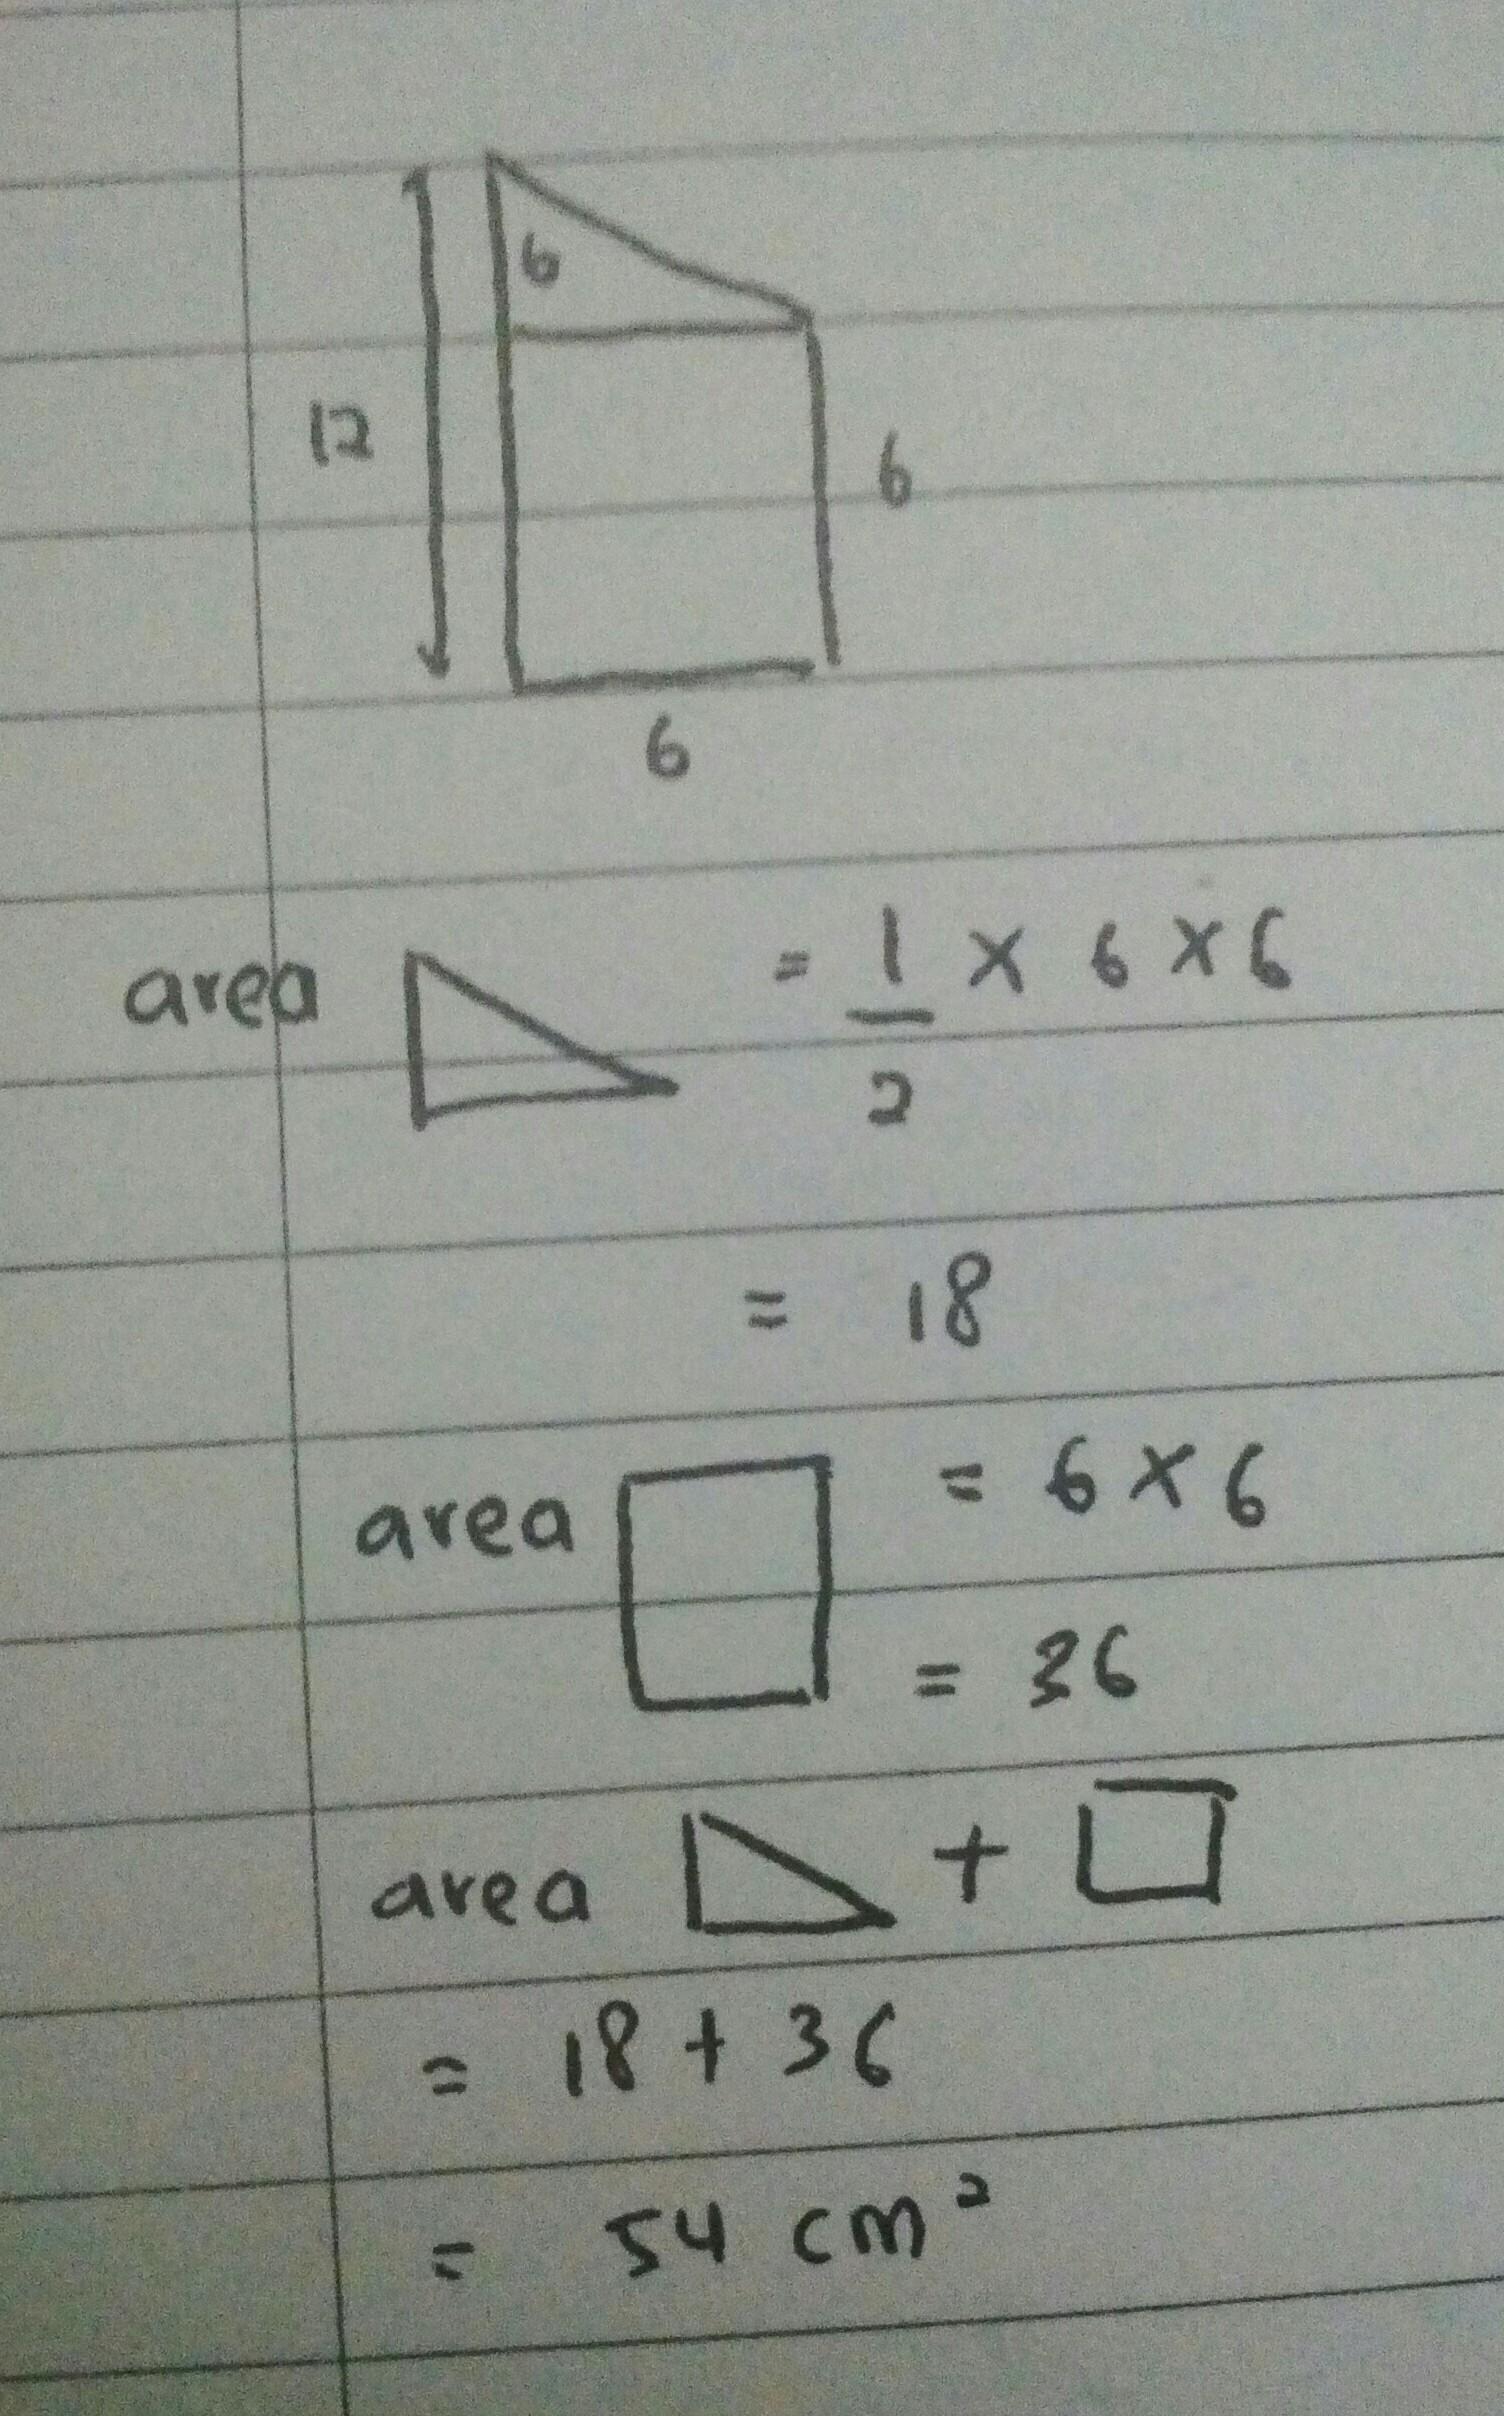 6
12
6
6
area = 1/2 × 6 × 6
= 18
area = 6 × 6
= 36
area +
= 18 + 36
= 54 cm²